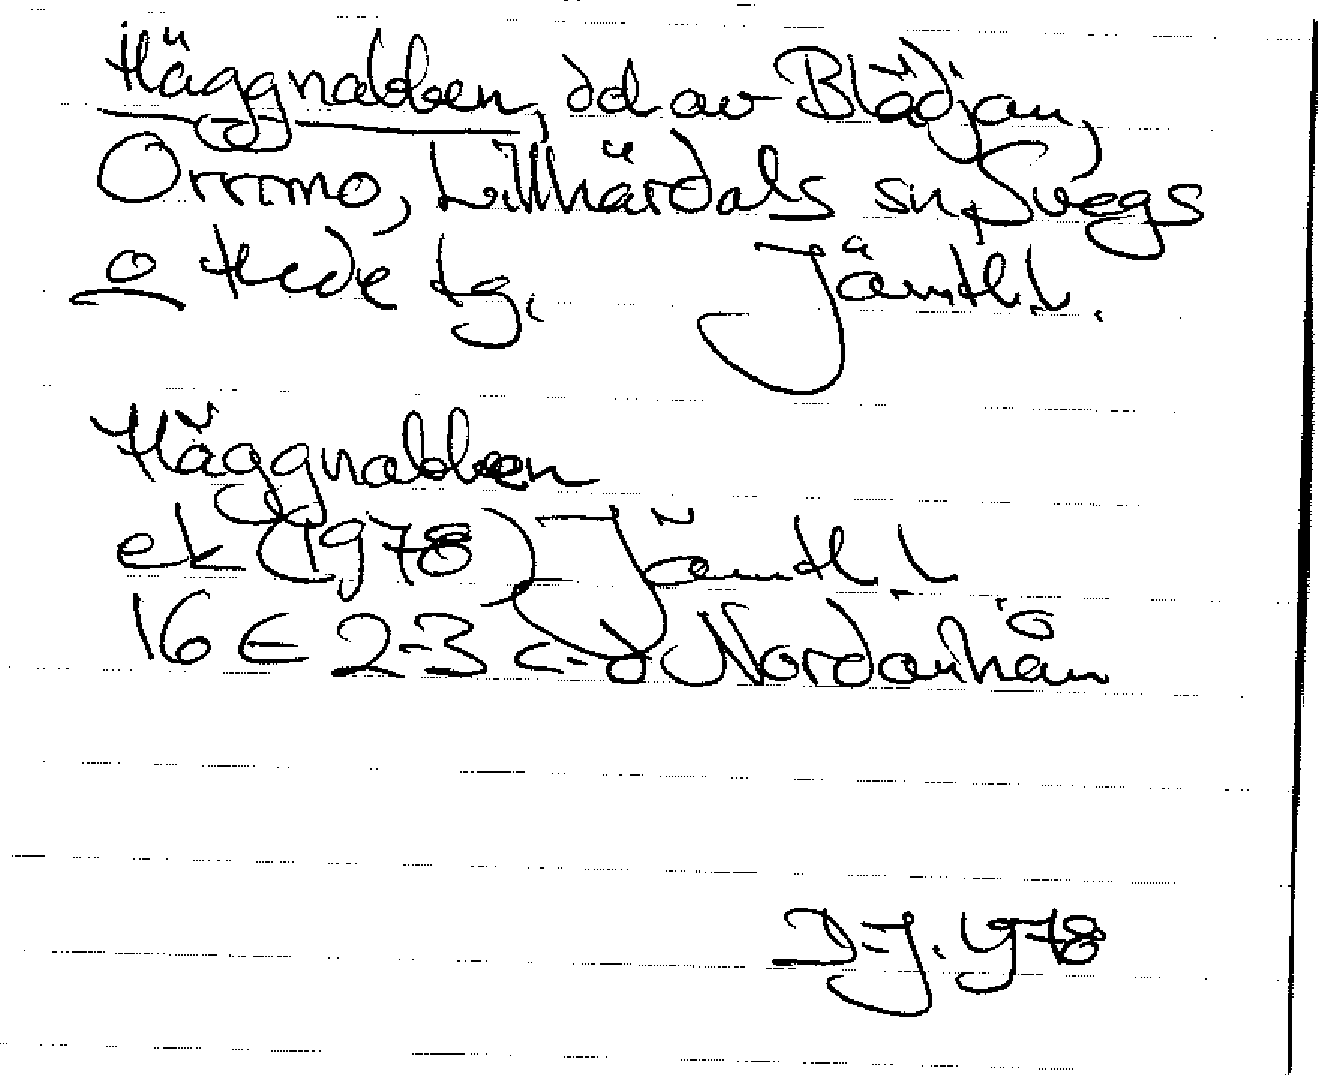 Häggnabben, del av Blädjan,
Orrmo, Lillhärdals sn, Svegs
o Hede tg. Jämtl. l.
Häggnabben
ek (1978) Jämtl l
16 E 2-3 c-d Nordanhån
D-J. 1978